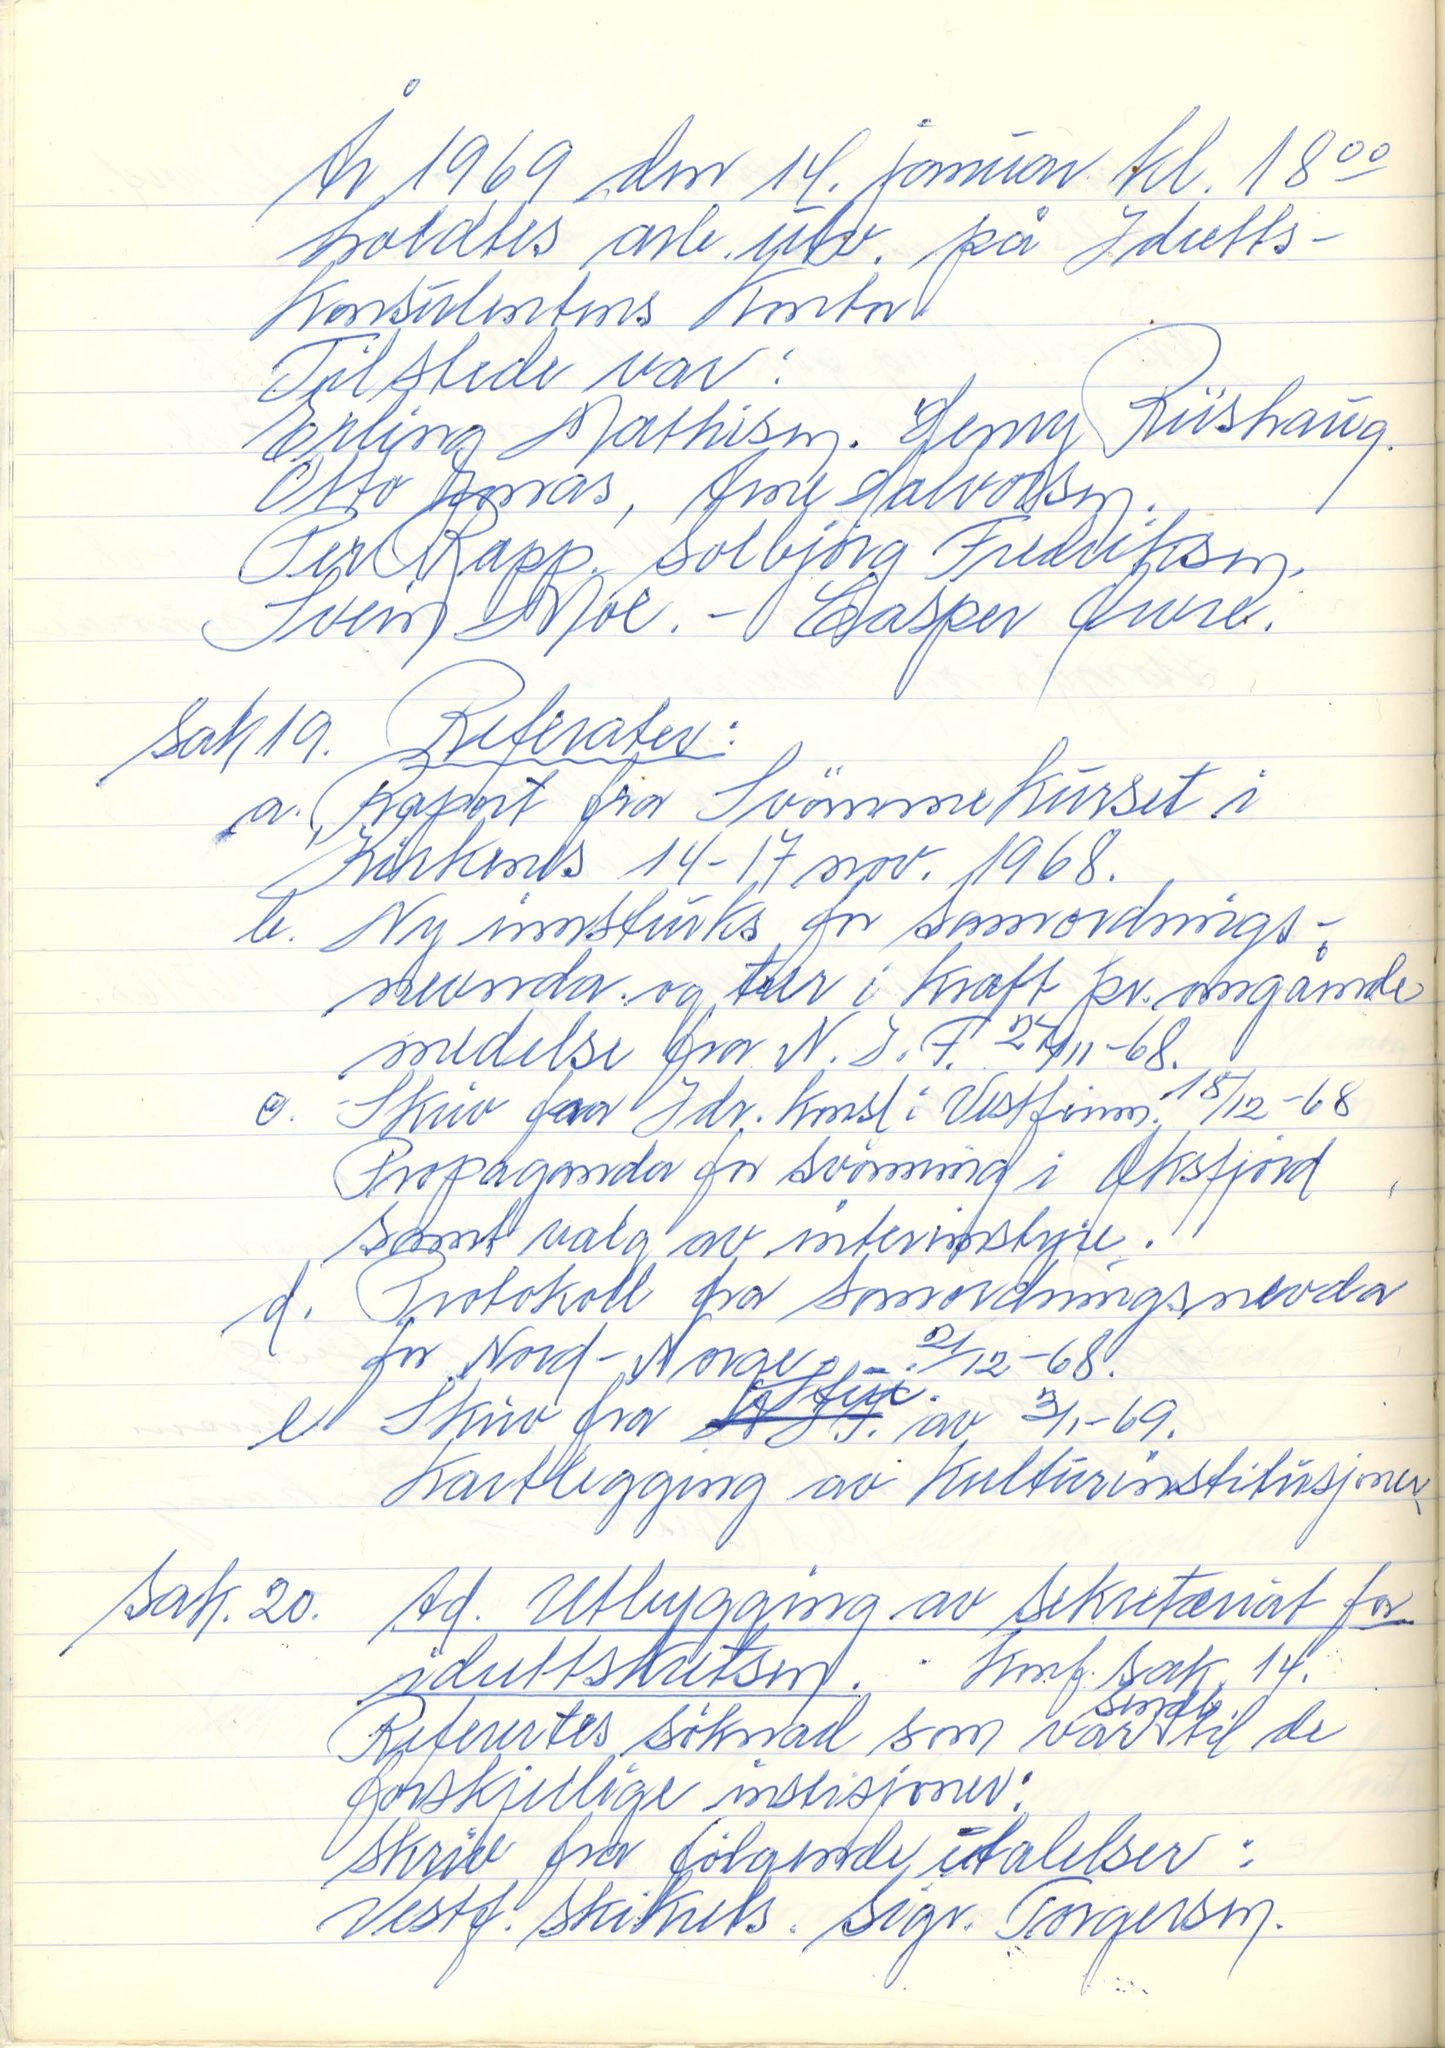 År 1969 den 14. januar kl. 18⁰⁰
holdtes arb. utv. på Idretts-
Konsulentens Kontor
Tilstede var:
Erling Mathisen. Henry Riishaug.
Otto Arne Halvorsen.
Per Rapp. Solbjørg Fredriksen.
Svein Moe. - Casper
Sak 19. Referater:
a. Raport fra Svømmekurset i
Kirkenes 14-17 nov. 1968.
b. Ny innstruks for samordnings-
nevnda og trer i kraft pr. omgående
medelse fra N. I. F. 27/11-68.
c. Skriv fra Idr. kons. i Vestfinnm. 18/12-68
Propaganda for svømming i Øksfjord
samt valg av interimstyre.
d. Protokoll fra Samordningsnevda
for Nord-Norge 2/12-68.
e Skriv fra av 3/1-69.
Kartlegging av Kulturinstitusjoner
Sak. 20. Ad. Utbygging av sekretæriat for
idrettskretsen. Konf. sak. 14.
sendt
Refertes søknad som var til de
forskjellige instisjoner:
skriv fra følgende utalelser:
Vestf. skikrets. Sigv. Torgersen.